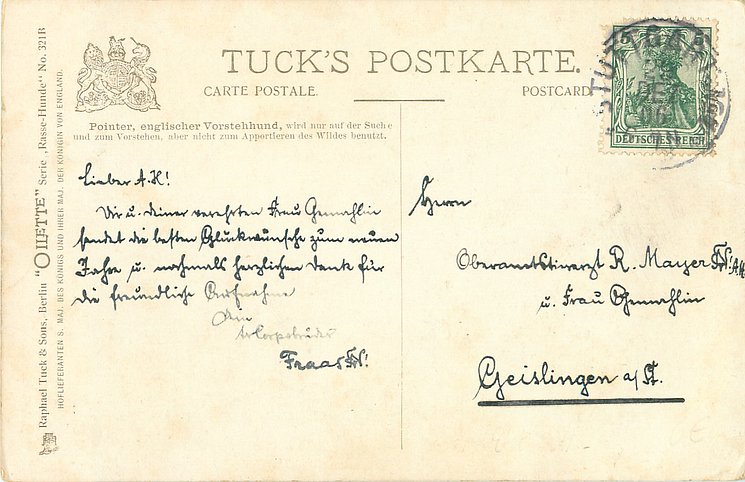 TUCK'S POSTKARTE.
CARTE POSTALE.
POSTCARD
Pointer, englischer Vorstehhund, wird nur auf der Suche
und zum Vorstehen, aber nicht zum Apportieren des Wildes benutzt.
Raphael Tuck & Sons, Berlin "OILETTE" Serie „Rasse-Hunde" No. 321B
HOFLIEFERANTEN S. MAJ. DES KÖNIGS UND IHRER MAJ. DER KÖNIGIN VON ENGLAND.
5 5
DEUTSCHES REICH
STUTTGART
DEZ
Lieber A.H!
Dir u. deiner verehrten Frau Gemahlin
sendet die besten Glückwünsche zum neuen
Jahre u. nochmals herzlichen Dank für
die freundliche Aufnahme
Dein
Corpsbruder
Fraas
Herrn
Oberamtstierarzt R. Mayer
u. Frau Gemahlin
Geislingen a/St.